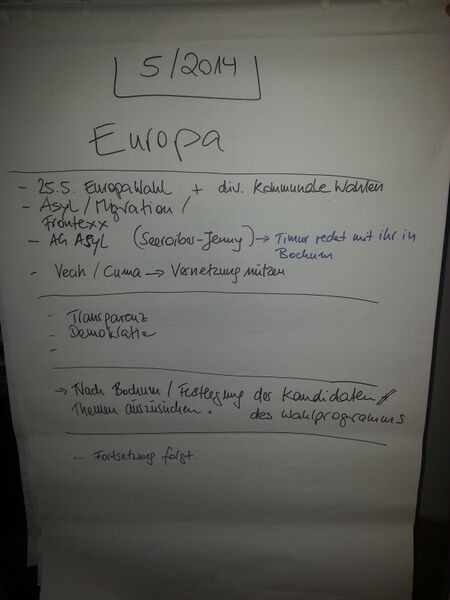 5/2014
Europa
- 25.5. Europawahl + div. Kommunale Wahlen
- Asyl / Migration /
Frontexx
- AG Asyl (Seeräuber-Jenny) → Timur redet mit ihr in
Bochum
- / Cuma → Vernetzung nützen
- Transparenz
- Demokratie
-
→ Nach Bochum / Festlegung der Kandidaten
Themen auszusuchen. des Wahlprogramms
... Fortsetzung folgt.